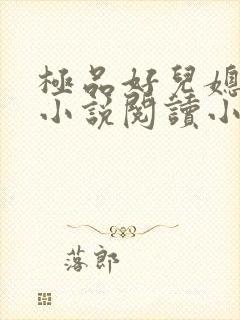 極品好兒媳
小說閱讀小
落郎